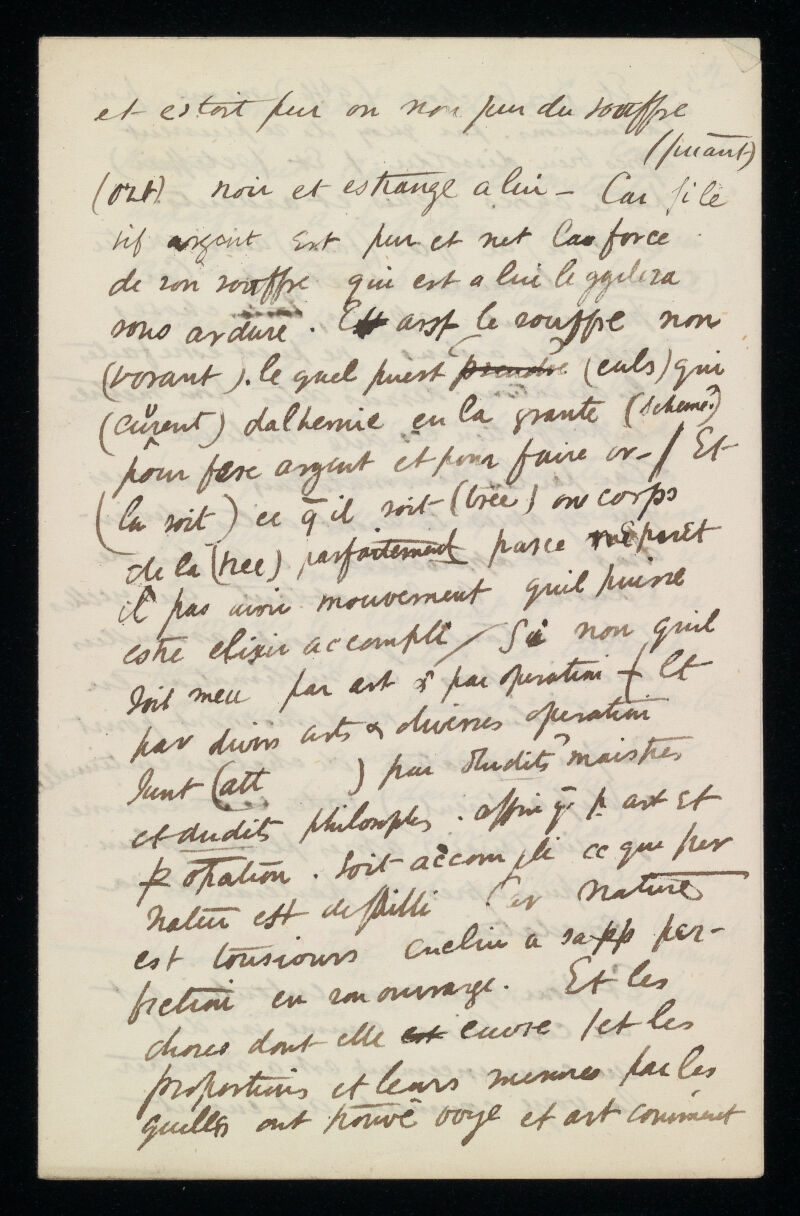 et estoit pur ou non pur du souffre
(puant)
(ort) noir et estrange a lui – Car si le
vif argent Est pur et net La force
de son souffre qui est a lui le
sous ardure. Est le souffre non
(vorant). le quel puest prendre (euls) qui
(curent) dalkemie en la grante (scheme?)
pour fere argent et pour faire or – / Et
(la soit) ce q̄ il soit (trée) ou corps
de la (tree) parfaitement parce
il pas avoir mouvement quil puisse
estre elixir accompli / Si non quil
soit meu par art & par operation + Et
par divers arts & diverses operation
sunt (att ) par dudits? maistres
et dudits philosophes. affin q̄ p art Et
p opation. soit accompli ce que per
nature est defailli Car nature
est tousiours encline a sa pp per-
fection en son ouvrage. Et les
choses dont elle est euvre / et les
proportions et leurs mesures par les
quelles ont trouvé voye et art comment